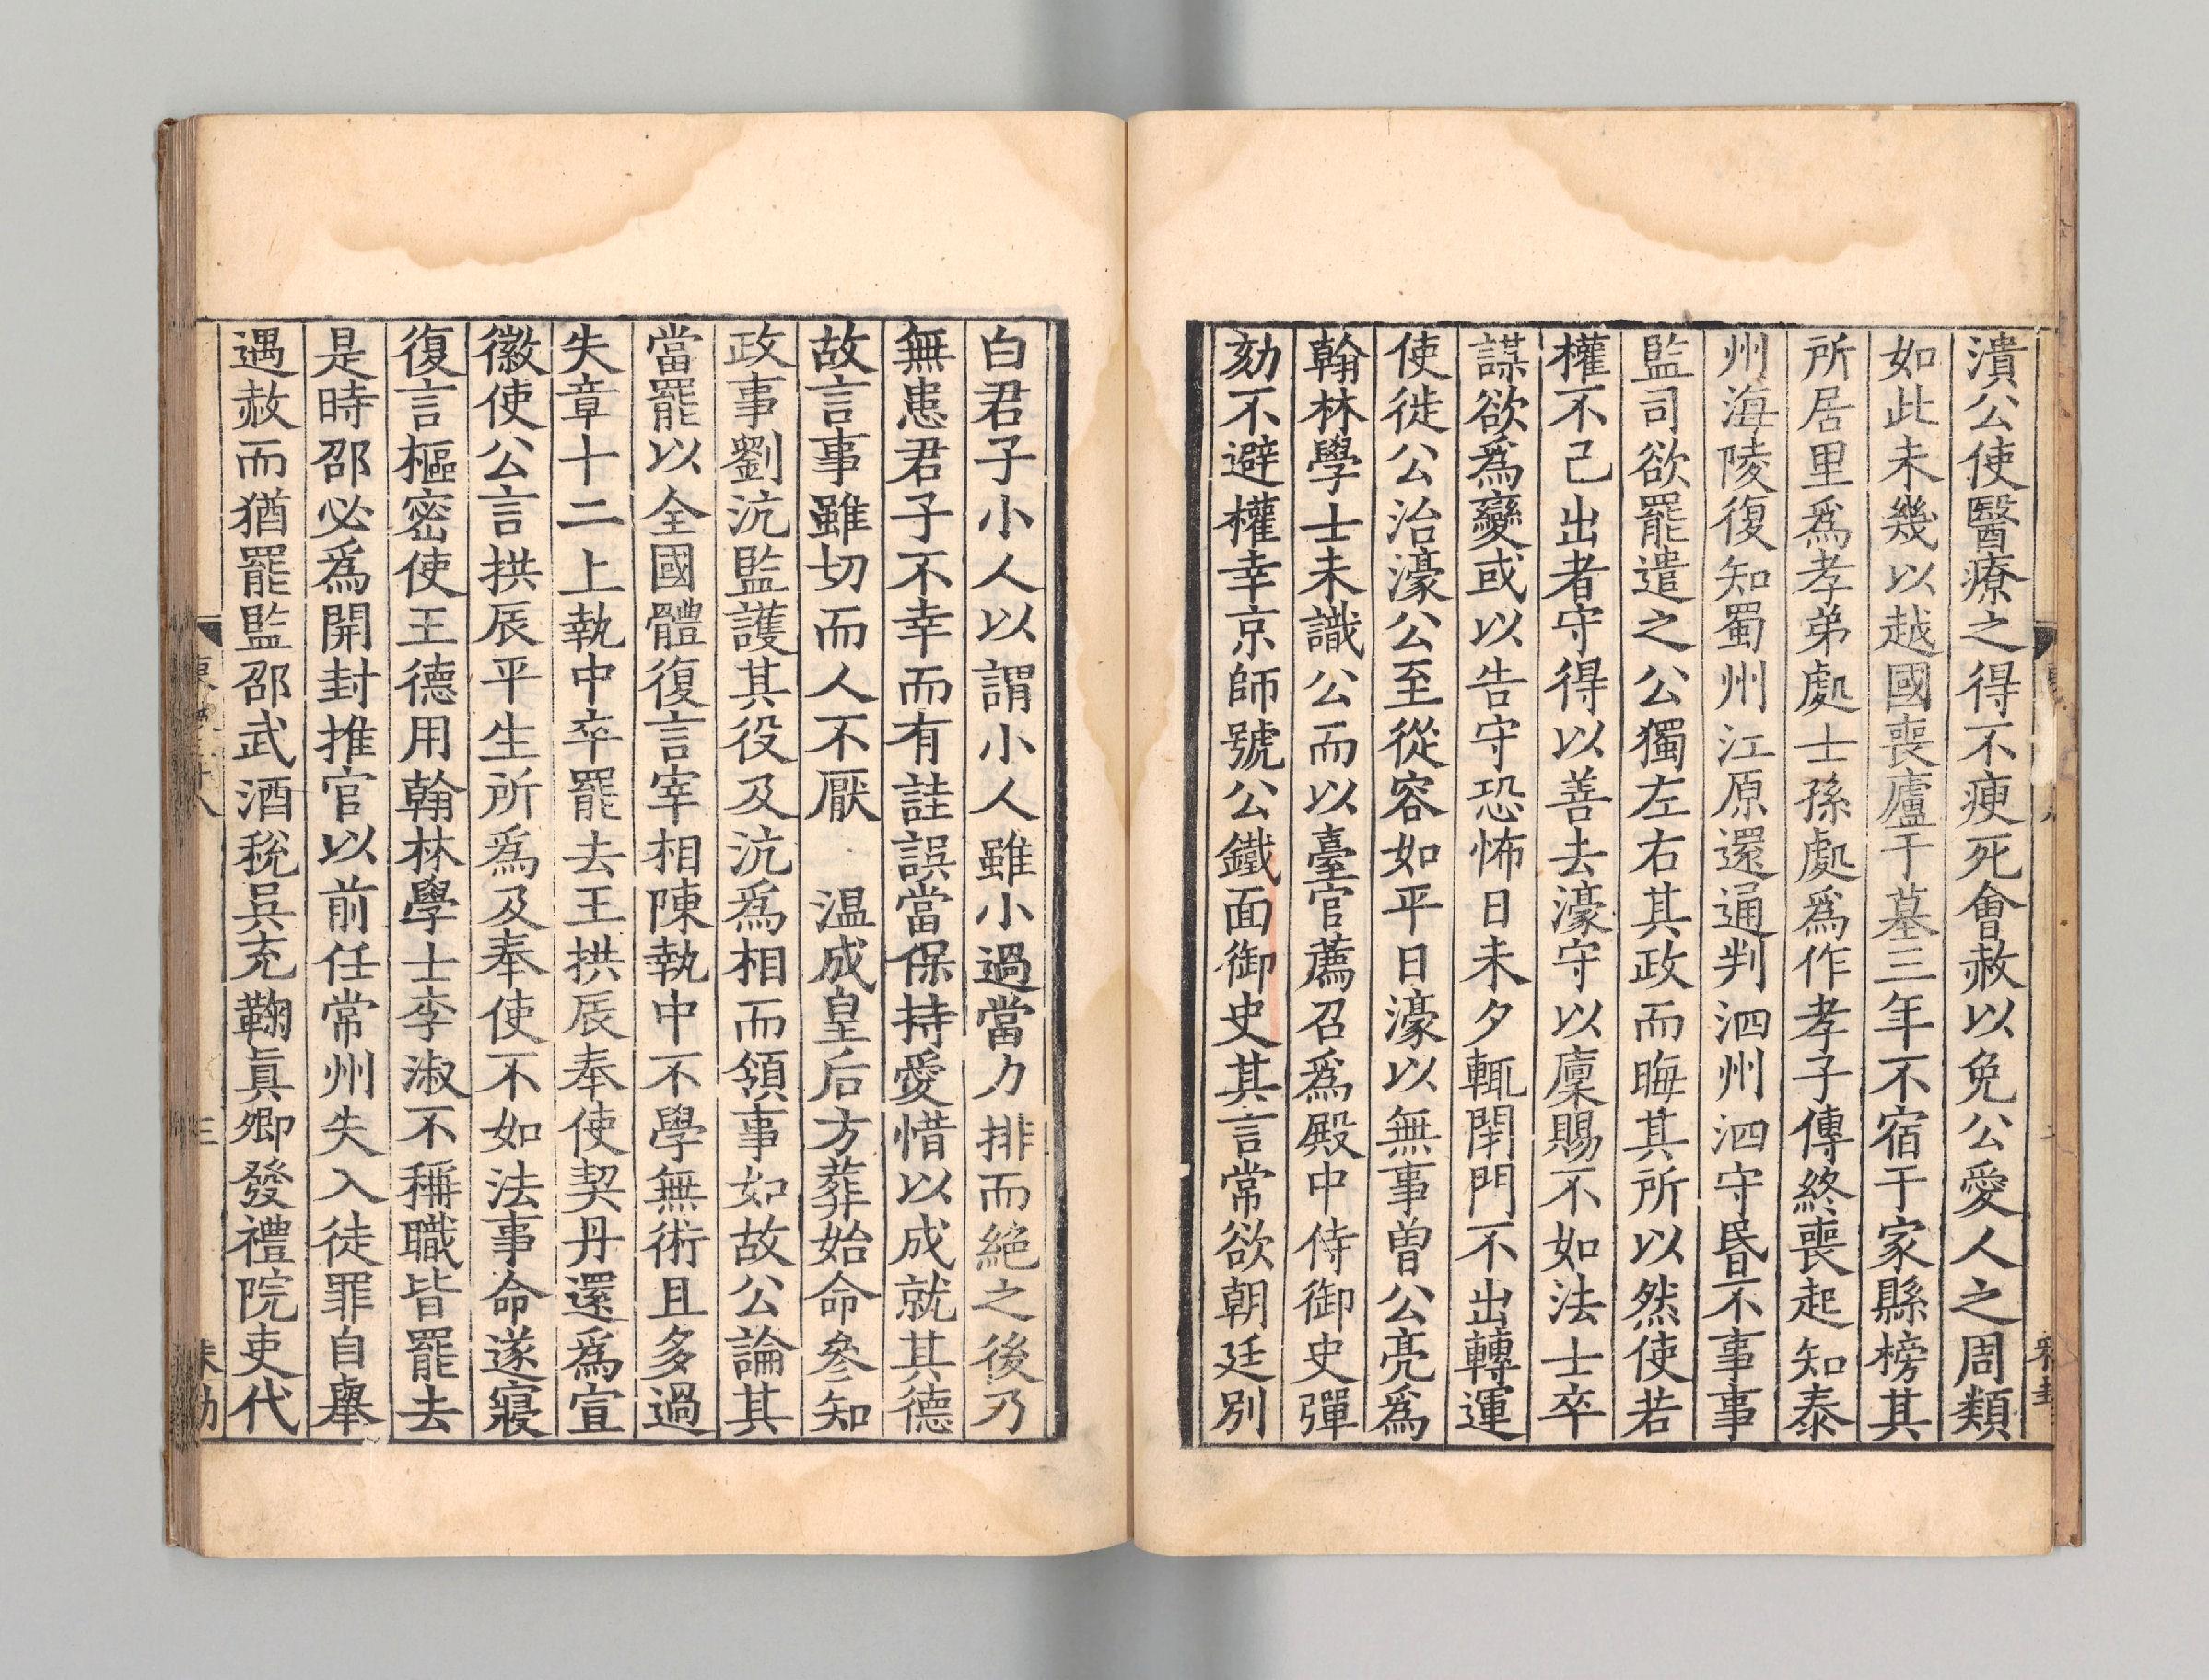 潰公使醫療之得不瘐死會赦以免公愛人之周類
如此未幾以越國喪廬于墓三年不宿于家縣榜其
所居里爲孝弟處士孫處爲作孝子傳終喪起知泰
州海陵復知蜀州江原還通判泗州泗守昏不事事
監司欲罷遣之公獨左右其政而晦其所以然使若
權不己出者守得以善去濠守以廩賜不如法士卒
謀欲爲變或以告守恐怖日未夕輒閉門不出轉運
使徙公治濠公至從容如平日濠以無事曾公亮爲
翰林學士未識公而以臺官薦召爲殿中侍御史彈
劾不避權幸京師號公鐵面御史其言常欲朝廷別
白君子小人以謂小人雖小過當力排而絕之後乃
無患君子不幸而有詿誤當保持愛惜以成就其德
故言事雖切而人不厭 温成皇后方葬始命參知
政事劉沆監護其役及沆爲相而領事如故公論其
當罷以全國體復言宰相陳執中不學無術且多過
失章十二上執中卒罷去王拱辰奉使契丹還爲宣
徽使公言拱辰平生所爲及奉使不如法事命遂寢
復言樞密使王德用翰林學士李淑不稱職皆罷去
是時邵必爲開封推官以前任常州失入徒罪自舉
遇赦而猶罷監邵武酒稅吳充鞠眞卿發禮院吏代